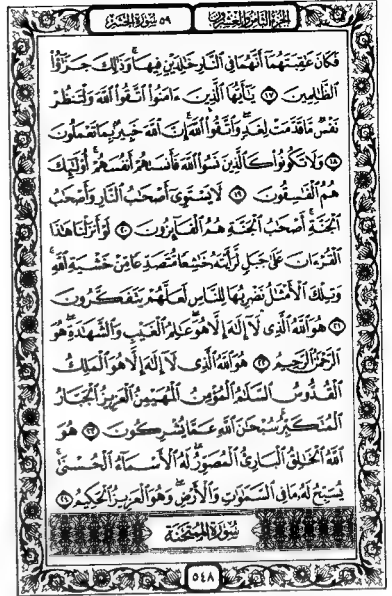 الجزء الثامن والعشرون
٥٩ سورة الحشر
فَكَانَ عَٰقِبَتَهُمَآ أَنَّهُمَا فِي ٱلنَّارِ خَٰلِدَيْنِ فِيهَا ۚ وَذَٰلِكَ جَزَٰٓؤُا۟
ٱلظَّٰلِمِينَ ١٧ يَٰٓأَيُّهَا ٱلَّذِينَ ءَامَنُوا۟ ٱتَّقُوا۟ ٱللَّهَ وَلْتَنظُرْ
نَفْسٌ مَّا قَدَّمَتْ لِغَدٍ ۖ وَٱتَّقُوا۟ ٱللَّهَ ۚ إِنَّ ٱللَّهَ خَبِيرٌۢ بِمَا تَعْمَلُونَ
١٨ وَلَا تَكُونُوا۟ كَٱلَّذِينَ نَسُوا۟ ٱللَّهَ فَأَنسَىٰهُمْ أَنفُسَهُمْ ۚ أُو۟لَٰٓئِكَ
هُمُ ٱلْفَٰسِقُونَ ١٩ لَا يَسْتَوِىٓ أَصْحَٰبُ ٱلنَّارِ وَأَصْحَٰبُ
ٱلْجَنَّةِ ۚ أَصْحَٰبُ ٱلْجَنَّةِ هُمُ ٱلْفَآئِزُونَ ٢٠ لَوْ أَنزَلْنَا هَٰذَا
ٱلْقُرْءَانَ عَلَىٰ جَبَلٍ لَّرَأَيْتَهُۥ خَٰشِعًا مُّتَصَدِّعًا مِّنْ خَشْيَةِ ٱللَّهِ ۚ
وَتِلْكَ ٱلْأَمْثَٰلُ نَضْرِبُهَا لِلنَّاسِ لَعَلَّهُمْ يَتَفَكَّرُونَ
٢١ هُوَ ٱللَّهُ ٱلَّذِى لَآ إِلَٰهَ إِلَّا هُوَ ۖ عَٰلِمُ ٱلْغَيْبِ وَٱلشَّهَٰدَةِ ۖ هُوَ
ٱلرَّحْمَٰنُ ٱلرَّحِيمُ ٢٢ هُوَ ٱللَّهُ ٱلَّذِى لَآ إِلَٰهَ إِلَّا هُوَ ٱلْمَلِكُ
ٱلْقُدُّوسُ ٱلسَّلَٰمُ ٱلْمُؤْمِنُ ٱلْمُهَيْمِنُ ٱلْعَزِيزُ ٱلْجَبَّارُ
ٱلْمُتَكَبِّرُ ۚ سُبْحَٰنَ ٱللَّهِ عَمَّا يُشْرِكُونَ ٢٣ هُوَ
ٱللَّهُ ٱلْخَٰلِقُ ٱلْبَارِئُ ٱلْمُصَوِّرُ ۖ لَهُ ٱلْأَسْمَآءُ ٱلْحُسْنَىٰ ۚ
يُسَبِّحُ لَهُۥ مَا فِى ٱلسَّمَٰوَٰتِ وَٱلْأَرْضِ ۖ وَهُوَ ٱلْعَزِيزُ ٱلْحَكِيمُ ٢٤
سورة الممتحنة
٥٤٨